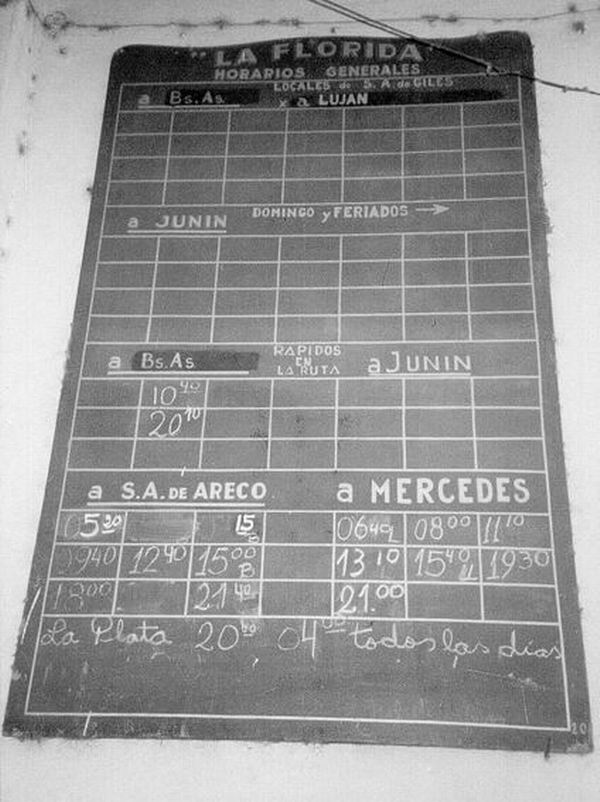 "LA FLORIDA"
HORARIOS GENERALES
LOCALES de S. A. de GILES
a Bs. As. x a LUJAN
a JUNIN DOMINGO y FERIADOS →
a Bs. As RAPIDOS EN LA RUTA a JUNIN
10 40
20 10
a S.A. DE ARECO a MERCEDES
05 20 15 B 06 40 08 00 11 10
0940 12 40 15 00 B 13 10 15 40 19 30
18 00 21 40 21.00
La Plata 20 00 04 00 todos las días
20